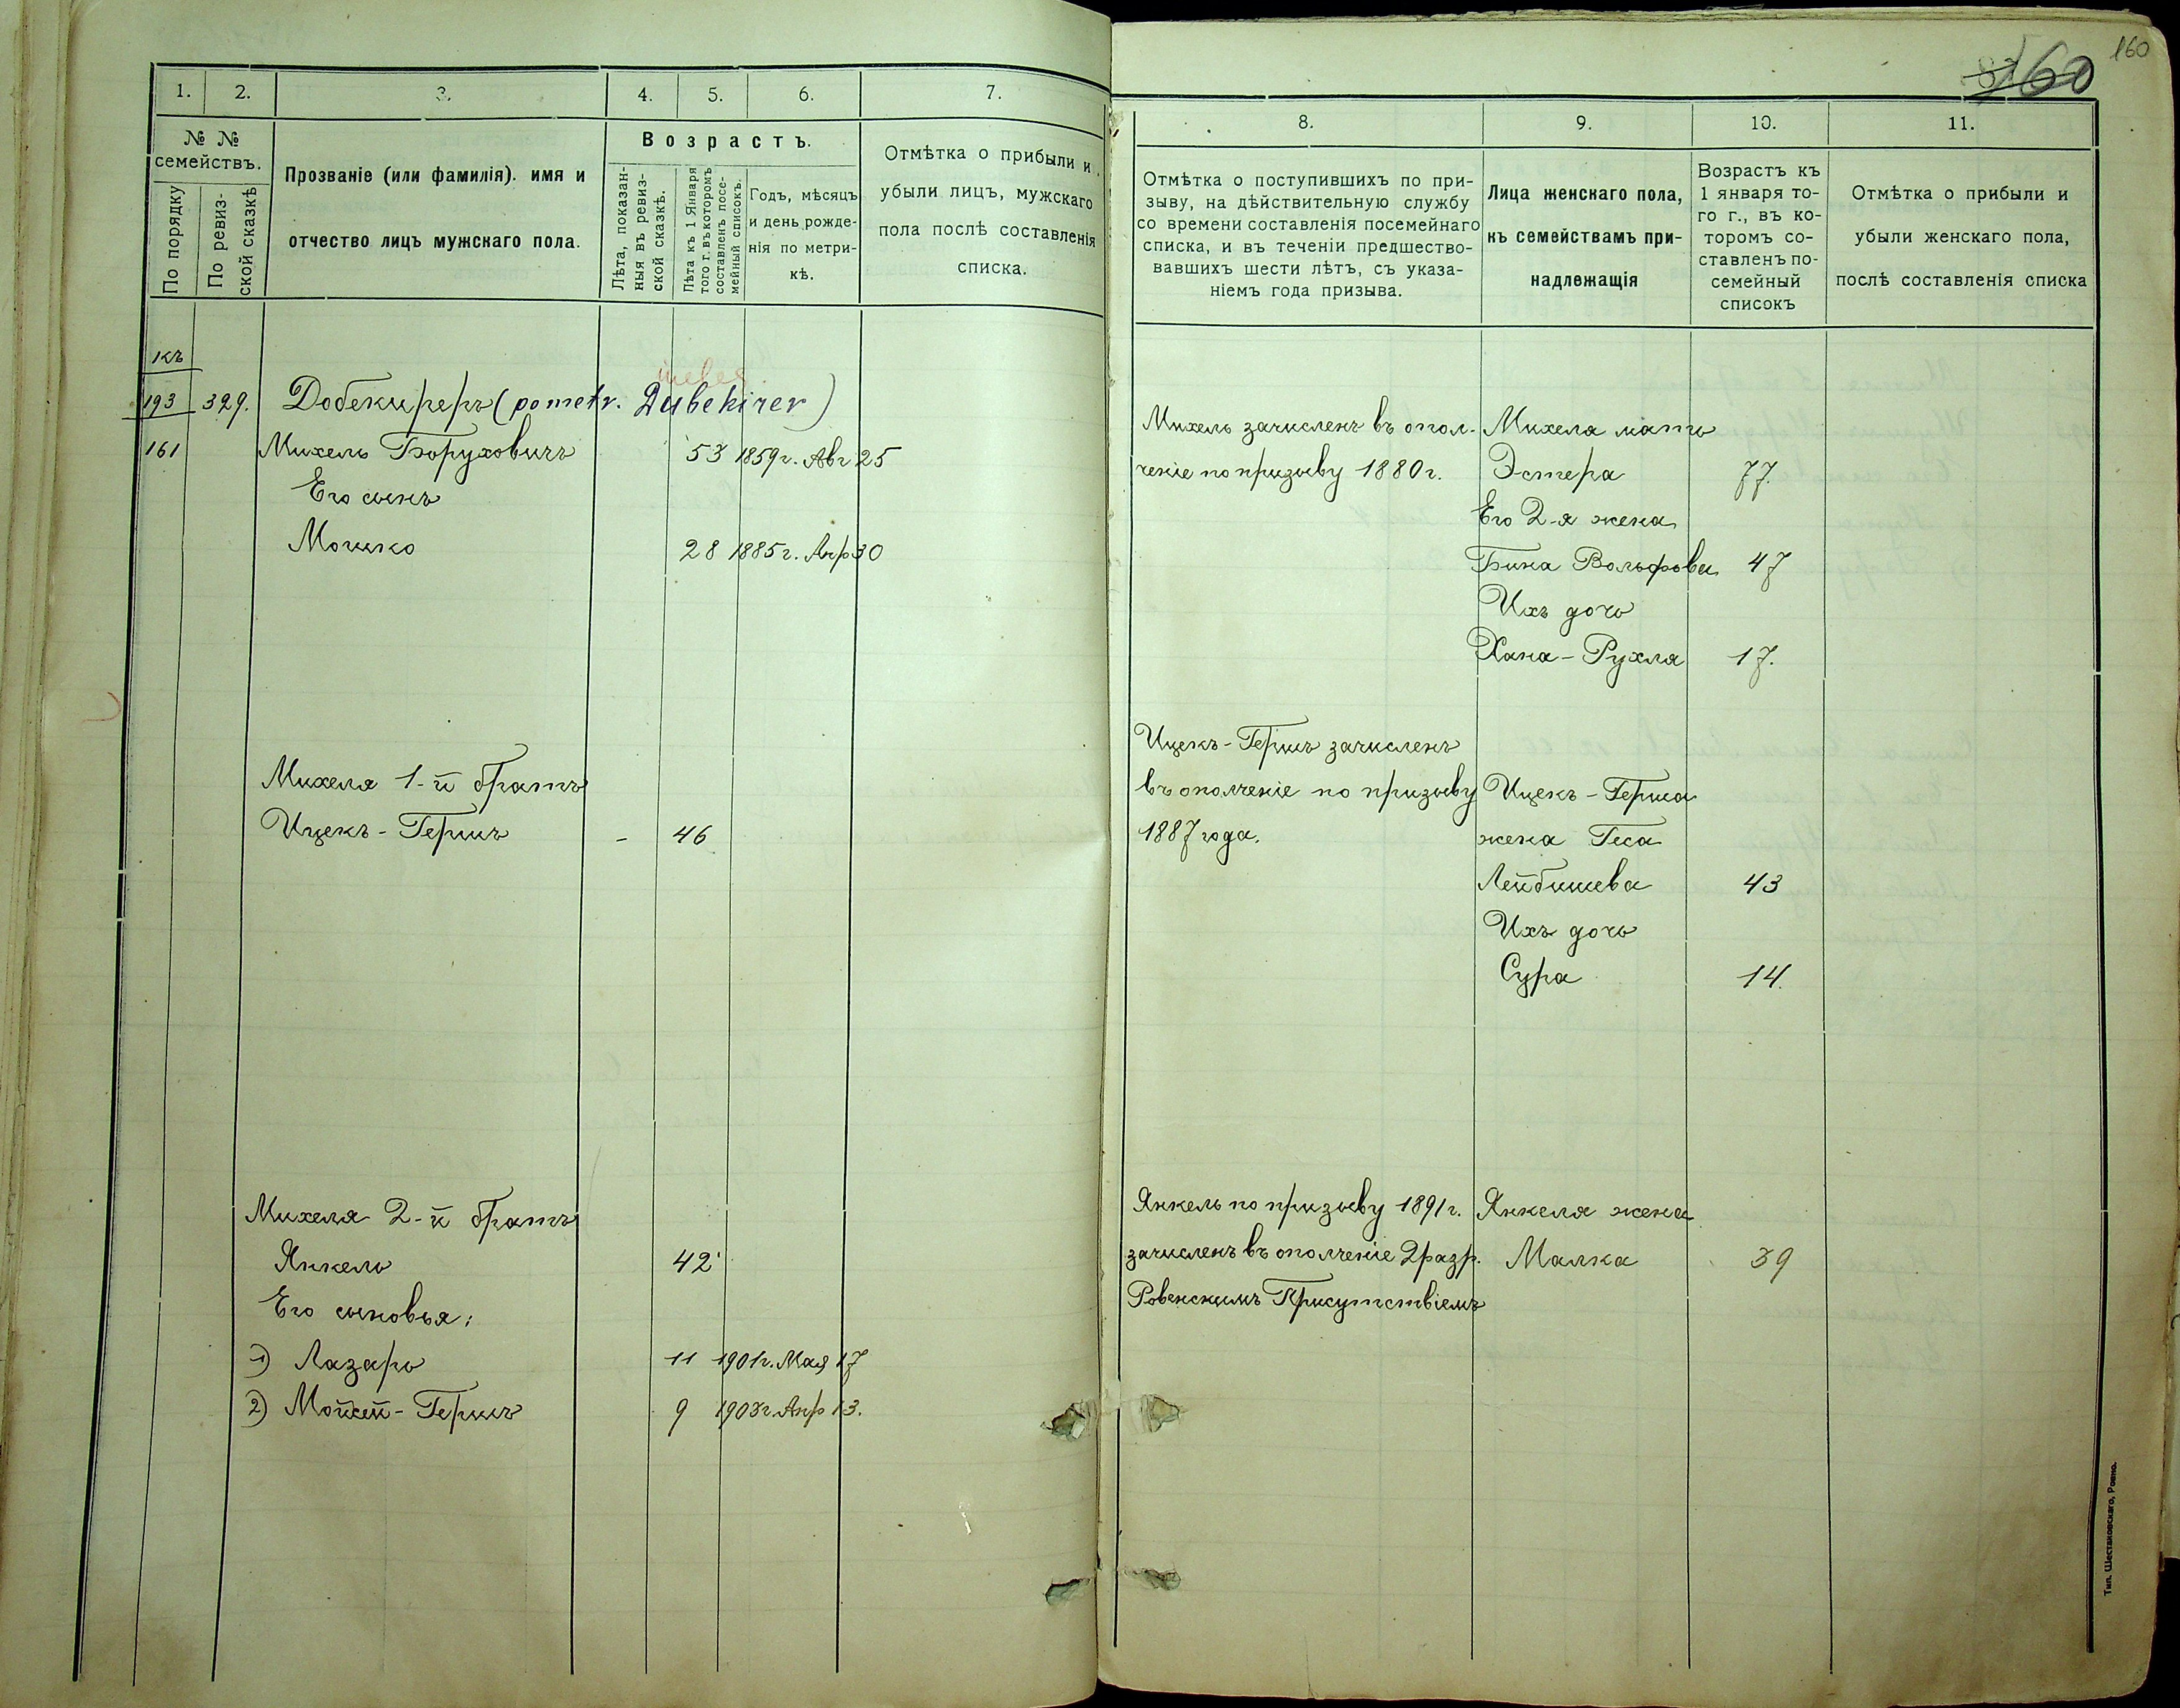 1. 2. 3. 4. 5. 6. 7.
№ №
семействъ.
По порядку
По ревиз-
ской сказкѣ
Прозваніе (или фамилія). имя и
отчество лицъ мужскаго пола.
Возрастъ.
Лѣта, показан-
ныя въ ревиз-
ской сказкѣ.
Лѣта къ 1 Января
того г. въ которомъ
составленъ посе-
мейный списокъ.
Годъ, мѣсяцъ
и день рожде-
нія по метри-
кѣ.
Отмѣтка о прибыли и
убыли лицъ, мужскаго
пола послѣ составленія
списка.
къ
193 329. Добекиреръ (pometr. Dubekirer)
161 Михель Боруховичъ 53 1859г. Авг 25
Его сынъ
Мошко 28 1885г. Апр 30
Михеля 1-й братъ
Ицекъ-Гершъ - 46
Михеля 2-й братъ
Янкель 42
Его сыновья:
1) Лазарь 11 1901г. Мая 17
2) Мойсей-Гершъ 9 1903г. Апр 13.
160
160
8. 9. 10. 11.
Отмѣтка о поступившихъ по при-
зыву, на дѣйствительную службу
со времени составленія посемейнаго
списка, и въ теченіи предшество-
вавшихъ шести лѣтъ, съ указа-
ніемъ года призыва.
Лица женскаго пола,
къ семействамъ при-
надлежащія
Возрастъ къ
1 января то-
го г., въ ко-
торомъ со-
ставленъ по-
семейный
списокъ
Отмѣтка о прибыли и
убыли женскаго пола,
послѣ составленія списка
Михель зачисленъ въ опол- Михеля мать
ченіе по призыву 1880г. Эстера 77.
Его 2-я жена
Бина Вольфова 47
Ихъ дочь
Хана-Рухля 17.
Ицекъ-Гершъ зачисленъ
въ ополченіе по призыву Ицекъ-Герша
1887 года. жена Геса
Лейбишева 43
Ихъ дочь
Сура 14.
Янкель по призыву 1891г. Янкеля жена
зачисленъ въ ополченіе 2 разр. Малка 39
Ровенскимъ Присутствіемъ
Тип. Шестаковскаго, Ровно.